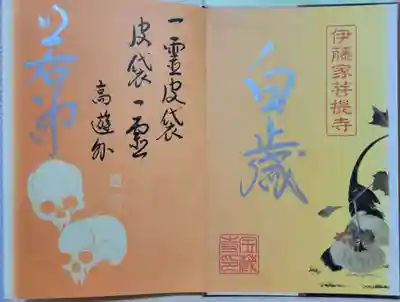 伊藤家菩提寺
白歳
一霊皮袋
皮袋一霊
高遊外
若冲